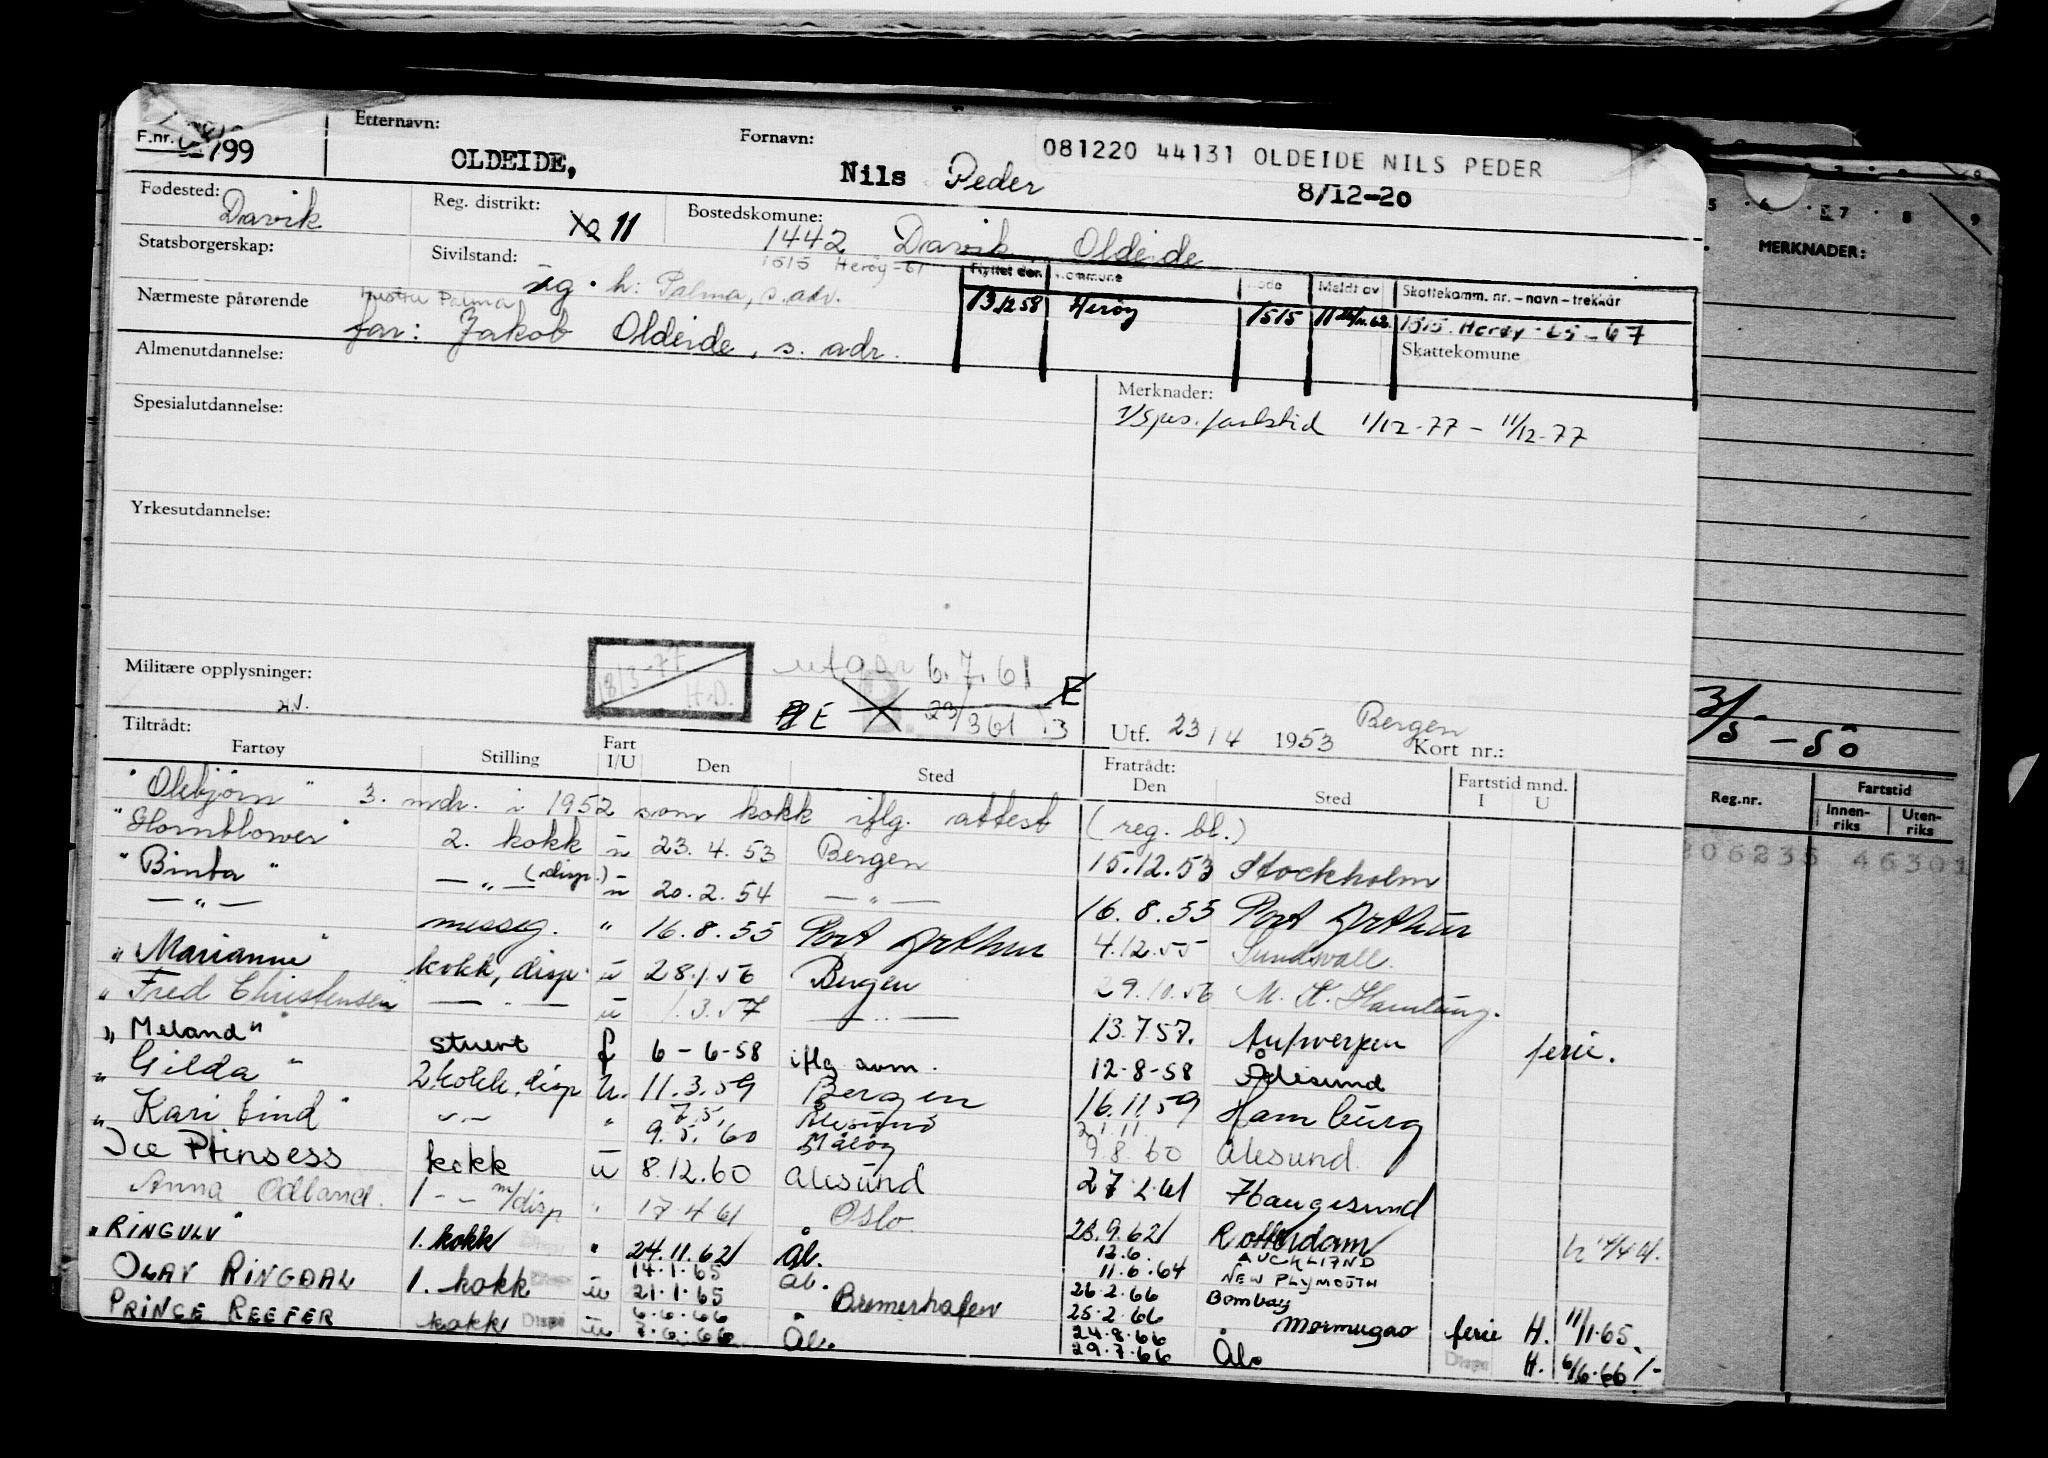 F.nr. 799
Etternavn: OLDEIDE,
Fornavn: Nils Peder
081220 44131 OLDEIDE NILS PEDER
8/12-20
Fødested: Davik
Reg. distrikt: 11
Bostedskomune: 1442 Davik Oldeide
1515 Herøy-61
Statsborgerskap:
Sivilstand: ug. h: Palma, s. adr.
Flyttet den Kommune Kode Meldt av Skattekomm. nr. – navn – trekkår
13.12.58 Herøy 1515 1515 Herøy-65-67
Skattekomune
Nærmeste pårørende hustru Palma
far: Jakob Oldeide, s. adr.
Almenutdannelse:
Merknader:
Spesialutdannelse:
fartstid 1/12-77 – 11/12-77
Yrkesutdannelse:
Militære opplysninger:
18/3-77 H.D.
utgår 6.7.61
E 23/3 61 E
Utf. 23/4 1953 Bergen
Kort nr.:
Tiltrådt: Fratrådt:
Fartøy Stilling Fart I/U Den Sted Den Sted Fartstid mnd. I U
"Olebjørn" 3. mdr. i 1952 som kokk iflg. attest (reg. bl.)
"Hornblower" 2. kokk u 23.4.53 Bergen 15.12.53 Stockholm
"Binta" — " — (disp.) u 20.2.54 — " — 16.8.55 Port Arthur
— " — messeg. " 16.8.55 Port Arthur 4.12.55 Sundsvall.
"Marianne" kokk, disp. u 28.1.56 Bergen 29.10.56 M. K. Hamburg.
"Fred Christensen" — " — u 1.3.57 — " — 13.7.57. Antwerpen ferie.
"Meland" stuert f 6-6-58 iflg avm. 12-8-58 Ålesund
"Gilda" 2 kokk, disp u. 11.3.59 Bergen 16.11.59 Hamburg
"Kari Lind" — " — " 7.5. Ålesund 21.11
9.5.60 Måløy 9.8.60 Ålesund.
Ice Prinsess kokk u 8.12.60 Ålesund 27.2.61 Haugesund
Anna Odland. 1 - - m/disp " 17.4.61 Oslo 23.9.62 Rotterdam
"RINGULV" 1. kokk " 24.11.62 Ål. 12.6. AUCKLAND
11.6.64 NEW PLYMOUTH
OLAV RINGDAL 1. kokk u 14.1.65 Ål. 26.2.66 Bombay
21.1.65 Bremerhafen 25.2.66 Mormugao ferie H. 11/1.65.
PRINCE REEFER kokk Disp u 6.6.66 24.8.66
7.6.66 Ål. 29.7.66 Ål. Disp H. 6/6.66 /-
5 6 7 8 9
MERKNADER:
3/5 – 50
Reg.nr. Fartstid
Innenriks Utenriks
206235 46301